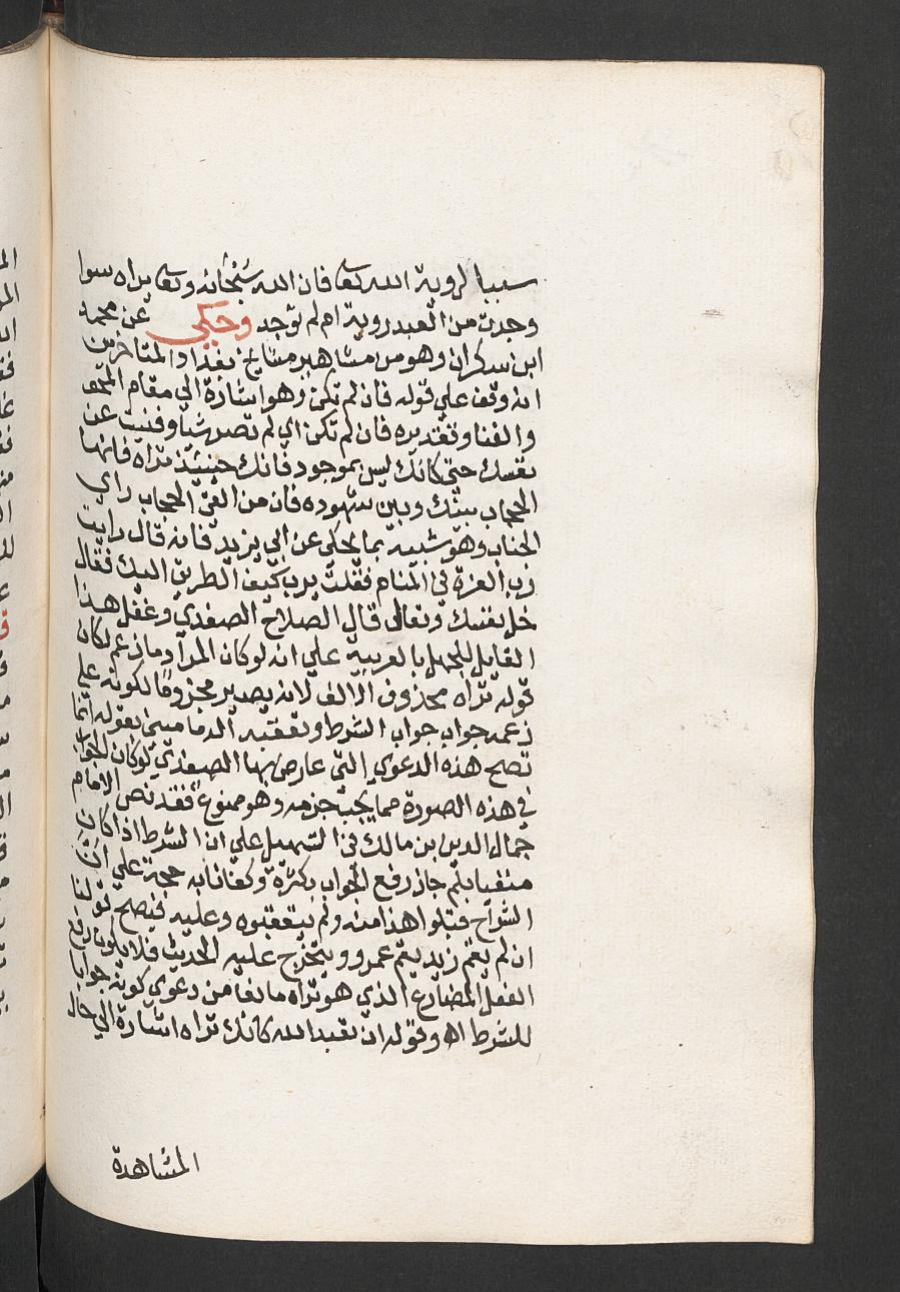 سببا لروية الله تعا فان الله سبحانه وتعا يراه سوا
وجدت من العبد روية ام لم توجد وحكي عن محمد
ابن سكران وهو من مشاهير مشايخ بغداد المتاخرين
انه وقف علي قوله فان لم تكن وهو اشارة الي مقام المحو
والفنا وتقديره فان لم تكن اي لم تصر شيا وفنيت عن
نفسك حتي كانك ليس بموجود فانك حينئذ تراه فانها
الحجاب بينك وبين شهوده فان من القي الحجاب راي
الجناب وهو شبيه بما يحكي عن ابي يزيد فانه قال رايت
رب العزة في المنام فقلت يرب كيف الطريق اليك فقال
خل نفسك وتعالى قال الصلاح الصفدي وغفل هذا
القايل للجهل بالعربية علي انه لو كان المراد ما زعم لكان
قوله تراه محذوف الالف لانه يصير مجزوما لكونه علي
زعمه جواب جواب الشرط وتعقبه الدماميني بقوله انما
تصح هذه الدعوي التي عارض بها الصفدي لو كان الجواب
في هذه الصورة مما يجب جزمه وهو ممنوع فقد نص الامام
جمال الدين بن مالك في التسهيل علي ان الشرط اذا كان
منفيا بلم جاز رفع الجواب بكثرة وكفانا به حجة علي ان
الشراح قبلوا هذا منه ولم يتعقبوه وعليه فيصح قولنا
ان لم يقم زيد يقم عمرو ويتخرج عليه الحديث فلا يكون رفع
الفعل المضارع الذي هو تراه مانعا من دعوي كونه جوابا
للشرط اه وقوله ان تعبد الله كانك تراه اشارة الي حال
المشاهدة